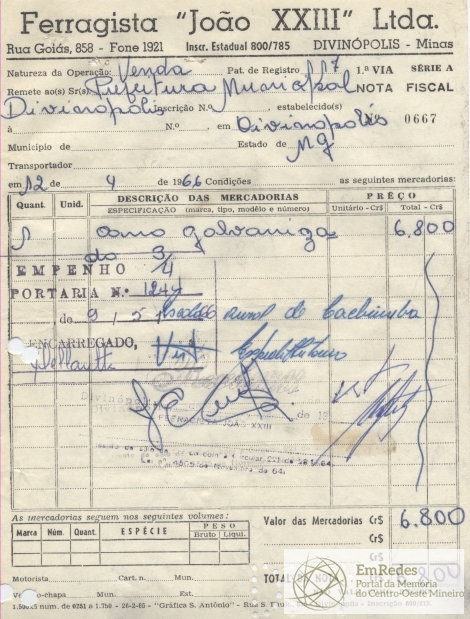 Ferragista "João XXIII" Ltda.
Rua Goiás, 858 - Fone 1921 Inscr. Estadual 800/785 DIVINÓPOLIS - Minas
Natureza da Operação: Venda Pat. de Registro 117 1.ª VIA SÉRIE A
Remete ao(s) Sr(s). Prefeitura Municipal NOTA FISCAL
Divinópolis Inscrição N.º estabelecido(s)
à N.º em Divinópolis Nº 0667
Município de Estado de Mg
Transportador
em 12 de 4 de 1966 Condições as seguintes mercadorias:
Quant. Unid. DESCRIÇÃO DAS MERCADORIAS PRÊÇO
ESPECIFICAÇÃO (marca, tipo, modêlo e número) Unitário - Cr$ Total - Cr$
1 cano galvaniza 6.800
do 3/4
EMPENHO
PORTARIA N.º 1244
de 9/5/ rural de Cachimba
ENCARREGADO,
Divinópolis de 19
FERRAGISTA JOÃO XXIII
de Novembro de 64.
As mercadorias seguem nos seguintes volumes: Valor das Mercadorias Cr$ 6.800
Marca Núm. Quant. ESPÉCIE PESO
Bruto Liqui. Cr$
Cr$
Motorista Cart. n. Mun. TOTAL DA NOTA
Veículo-chapa Mun. Est.
1.500x5 num. de 0251 a 1.750 - 26-2-65 - "Gráfica S. Antônio" - Rua S. Paulo
EmRedes
Portal da Memória
do Centro-Oeste Mineiro